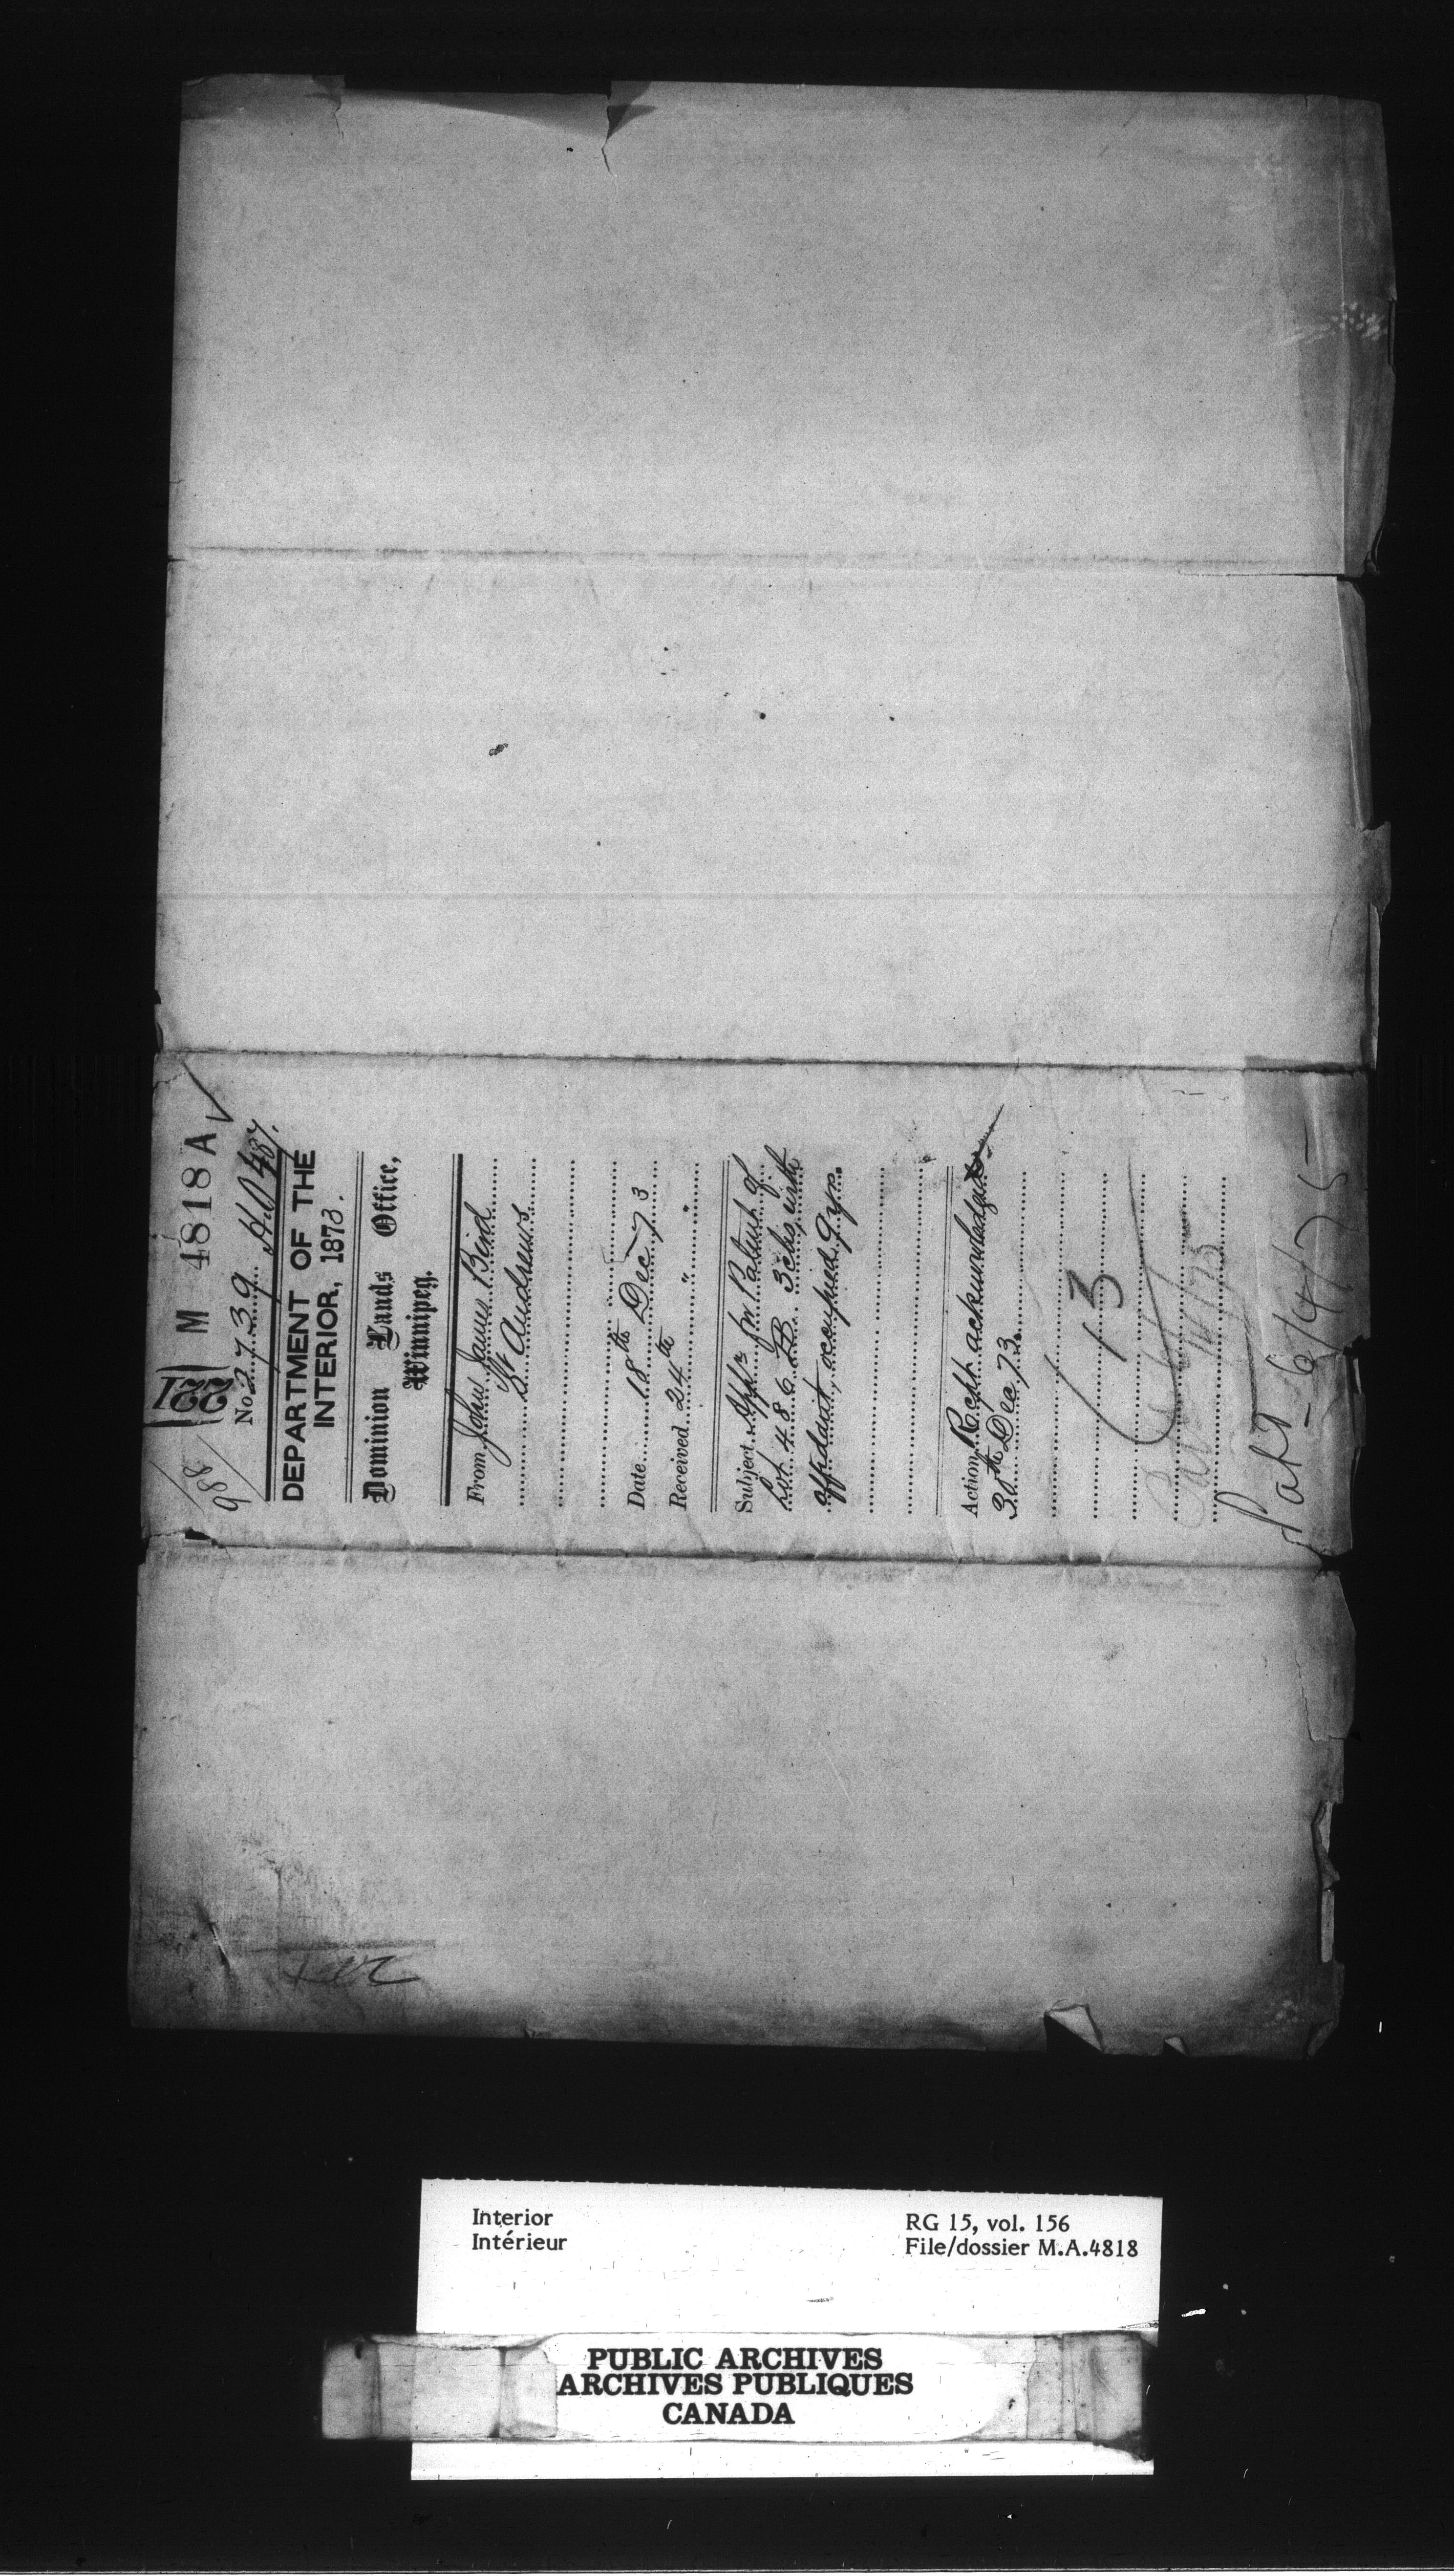 221 M 4818 A
988
No. 2739 H.O 487.
DEPARTMENT OF THE
INTERIOR, 1873.
Dominion Lands Office,
Winnipeg.
From John James Bird
St Andrews
Date 18th Dec 73
Received 24th " "
Subject Appln for Patent of
Lot 486 3 chs with
affidavit, occupied 9 yrs.
Action Recpt acknowledged
30th Dec 73.
13
Patd 6/4/75
Interior
Intérieur
RG 15, vol. 156
File/dossier M.A.4818
PUBLIC ARCHIVES
ARCHIVES PUBLIQUES
CANADA